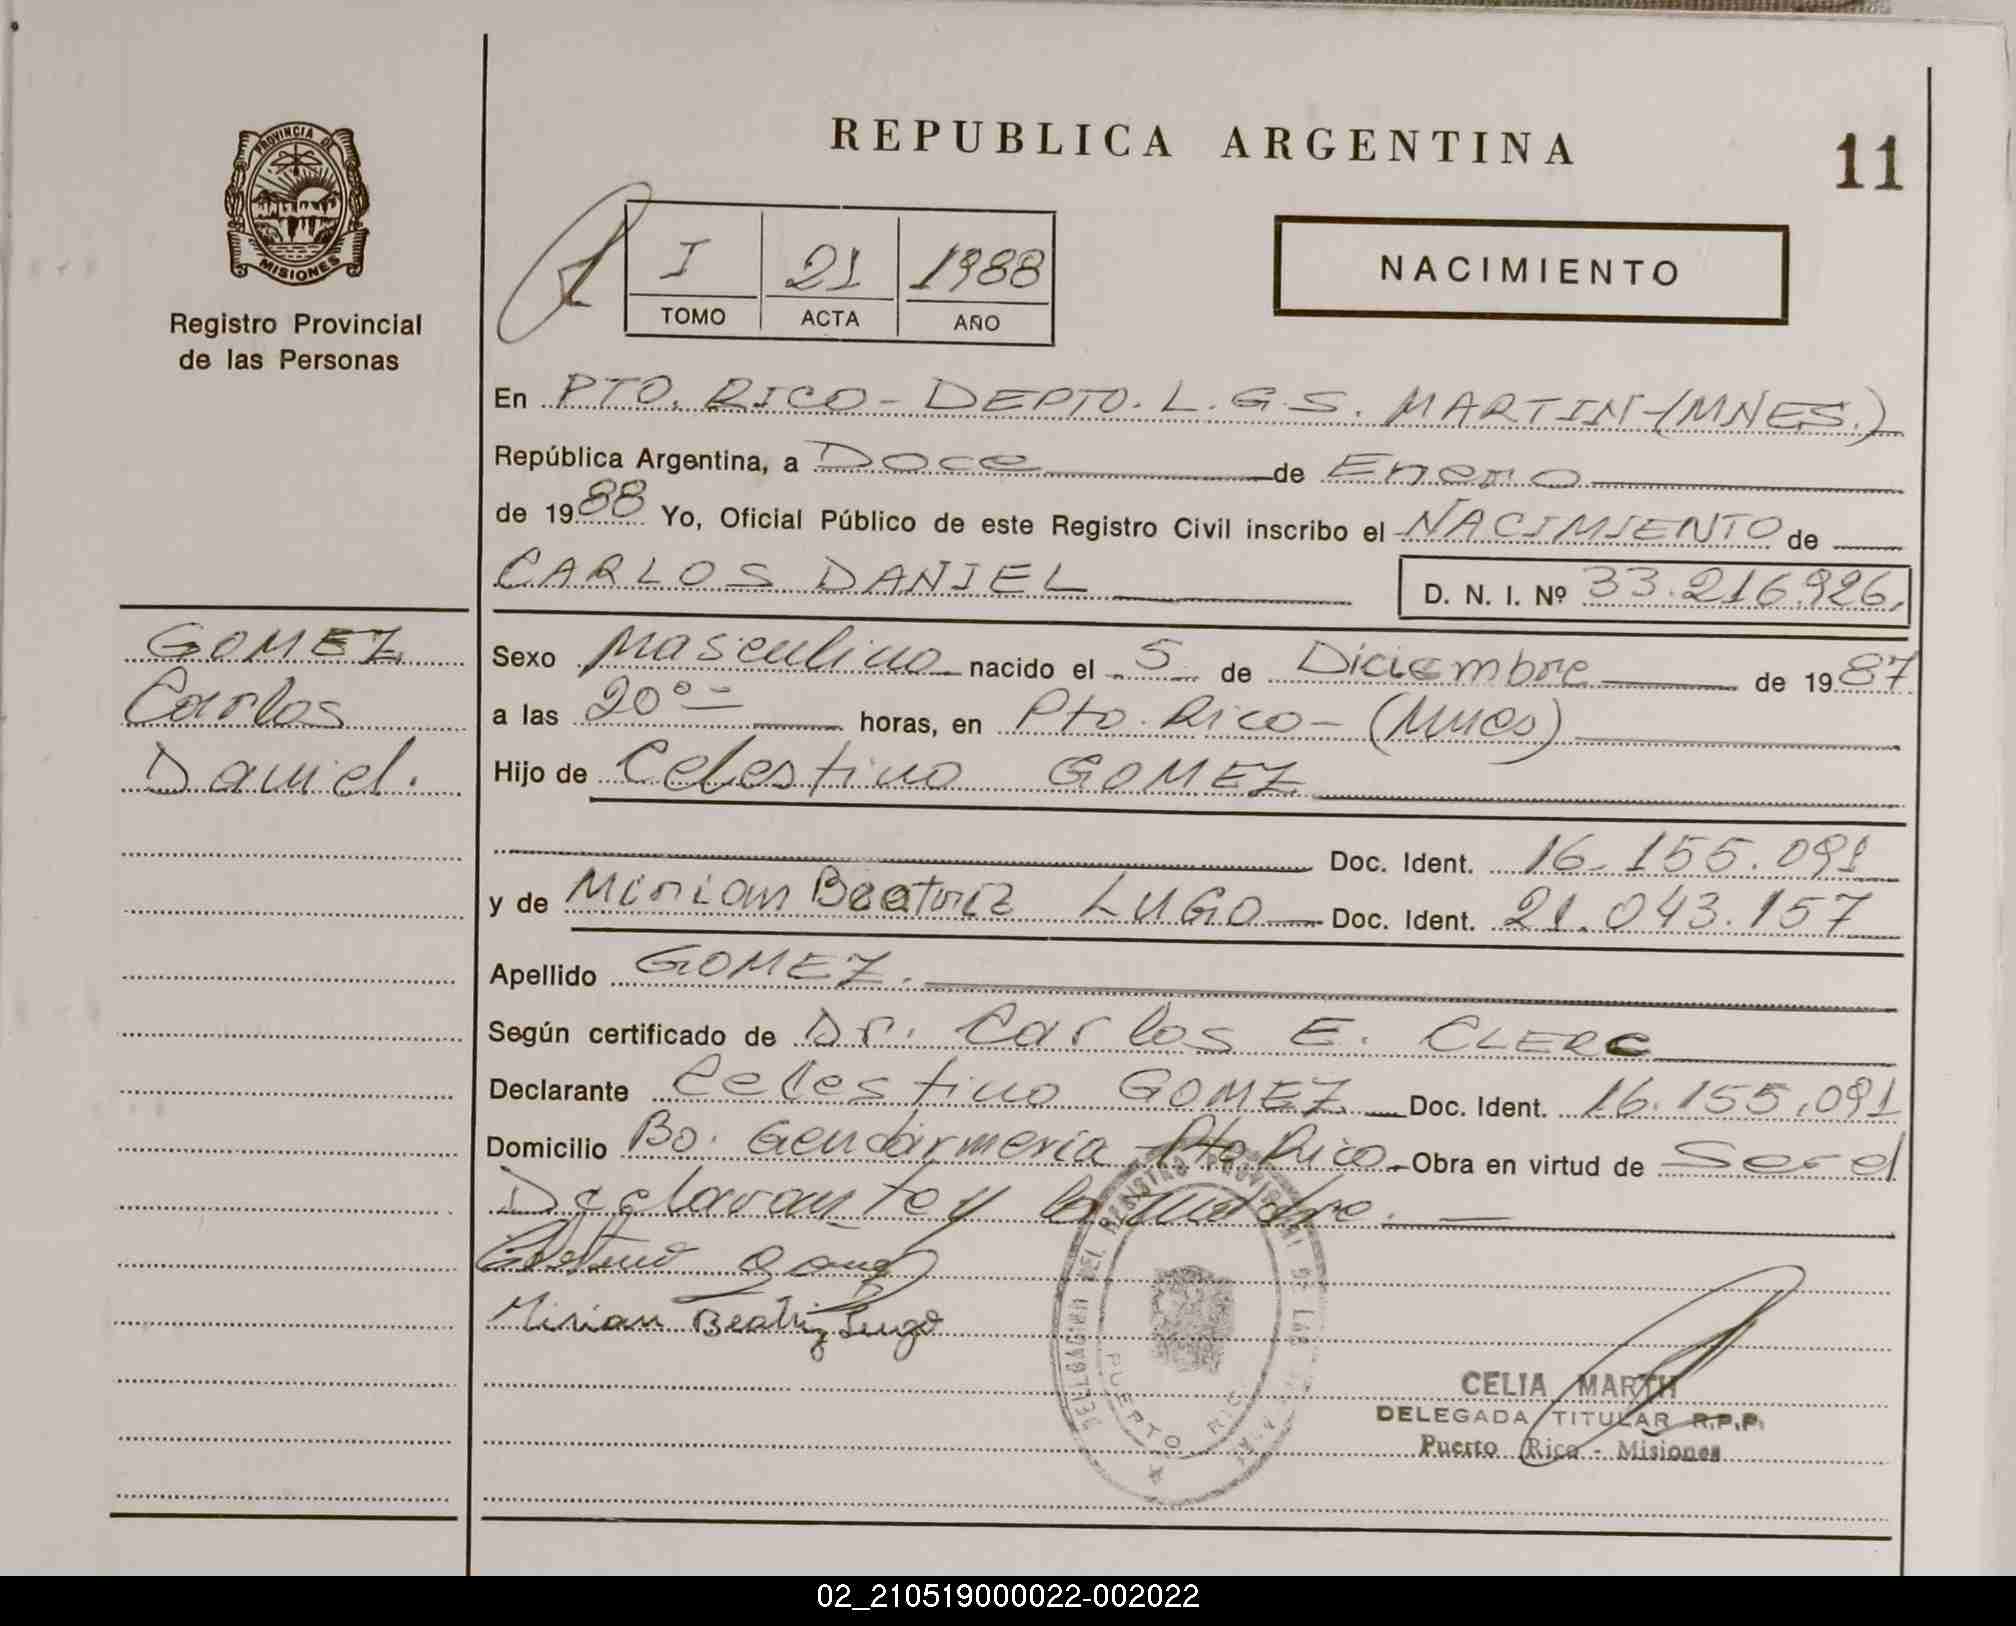 REPUBLICA ARGENTINA
11
PROVINCIA DE
MISIONES
Registro Provincial
de las Personas
I 21 1988
TOMO ACTA AÑO
NACIMIENTO
En PTO. RICO - DEPTO. L.G.S. MARTIN - (MNES.)
República Argentina, a Doce de Enero
de 1988 Yo, Oficial Público de este Registro Civil inscribo el NACIMIENTO de
CARLOS DANIEL D. N. I. Nº 33.216.926.
GOMEZ
Carlos
Daniel.
Sexo Masculino nacido el 5 de Diciembre de 1987
a las 20°= horas, en Pto. Rico - (Mnes)
Hijo de Celestino GOMEZ
Doc. Ident. 16.155.091
y de Mirian Beatriz LUGO Doc. Ident. 21.043.157
Apellido GOMEZ.
Según certificado de Dr. Carlos E. CLERC
Declarante Celestino GOMEZ Doc. Ident. 16.155.091
Domicilio Bo. Gendarmería Pto Rico Obra en virtud de Ser el
Declarante y la madre.
Celestino Gomez
Mirian Beatriz Lugo
DELEGACION DEL REGISTRO PROVINCIAL DE LAS
PUERTO RICO
CELIA MARTH
DELEGADA TITULAR R.P.P.
Puerto Rico - Misiones
02_210519000022-002022